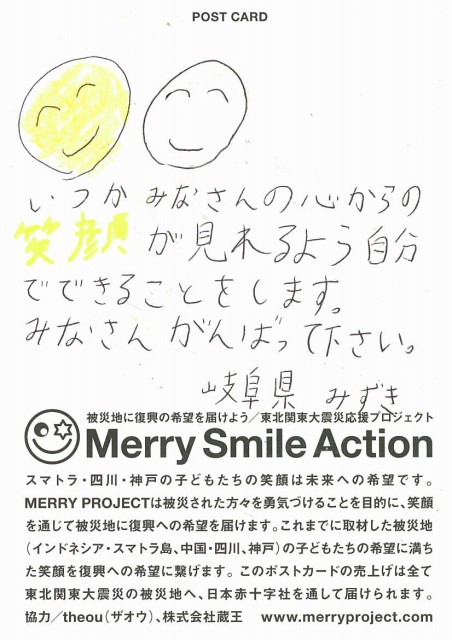 POST CARD
いつかみなさんの心からの
笑顔が見れるよう自分
でできることをします。
みなさんがんばって下さい。
岐阜県 みずき
被災地に復興の希望を届けよう/東北関東大震災応援プロジェクト
Merry Smile Action
スマトラ・四川・神戸の子どもたちの笑顔は未来への希望です。
MERRY PROJECTは被災された方々を勇気づけることを目的に、笑顔
を通じて被災地に復興への希望を届けます。これまでに取材した被災地
(インドネシア・スマトラ島、中国・四川、神戸)の子どもたちの希望に満ち
た笑顔を復興への希望に繋げます。このポストカードの売上げは全て
東北関東大震災の被災地へ、日本赤十字社を通して届けられます。
協力/theou(ザオウ)、株式会社蔵王 www.merryproject.com